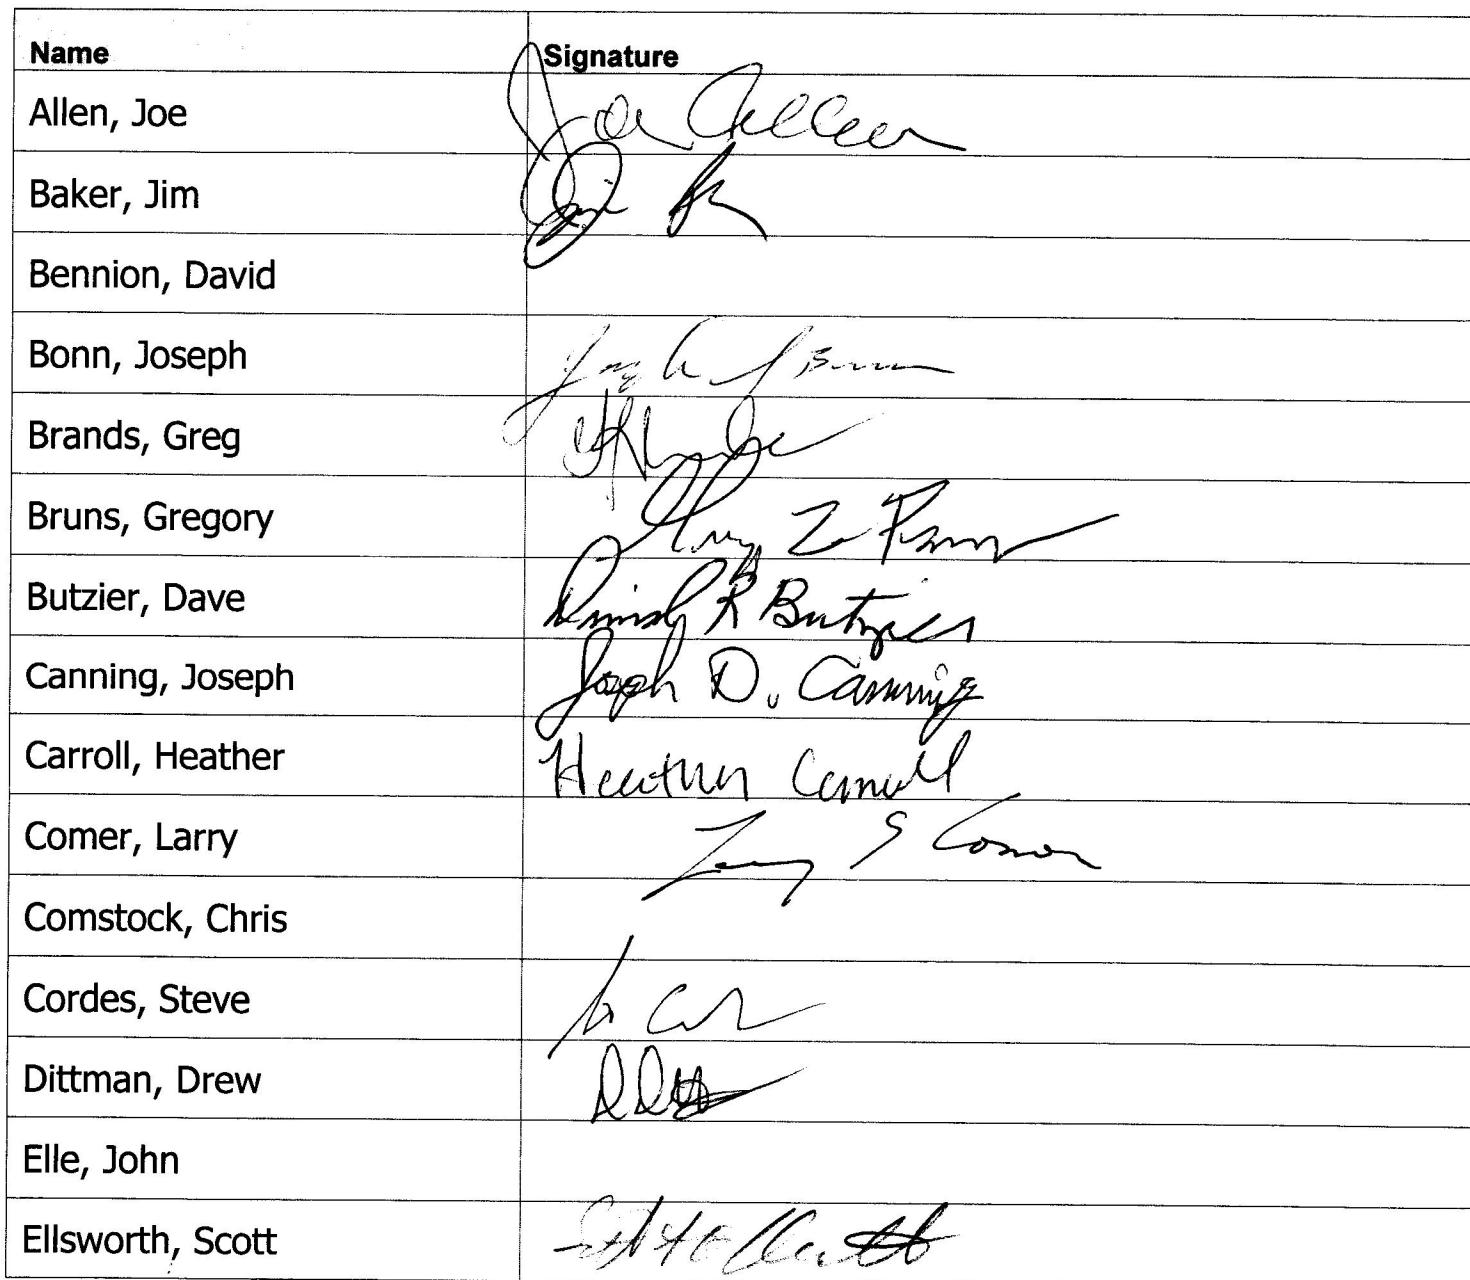 Name Signature
Allen, Joe Joe Allen
Baker, Jim Jim
Bennion, David
Bonn, Joseph
Brands, Greg
Bruns, Gregory
Butzier, Dave R Butzier
Canning, Joseph Joseph D. Canning
Carroll, Heather Heather Carroll
Comer, Larry Larry S Comer
Comstock, Chris
Cordes, Steve
Dittman, Drew
Elle, John
Ellsworth, Scott